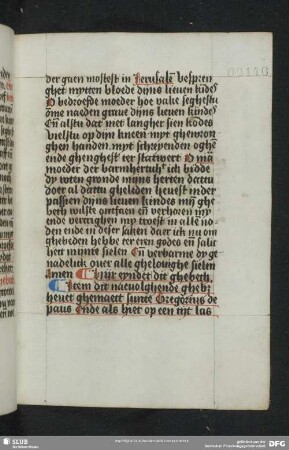 der gaen mostest in Jerusalem bespren
ghet mytten bloede dijns lieuen kindes
O bedroefde moeder hoe vake seghestu
ōme naeden graue dijns lieuen kindes
Eñ alstu dat met langher sien kōdes
vielstu op dijn kneen myt ghewron
ghen handen. myt schreyenden oghē
ende ghenghest ter statwert O ma
moeder der barmherticheit ich bidde
dy wten gronde mijns herten dattu
doer al dattu gheleden heuest inder
passien dijns lieuen kindes mijn ghe
beth wilst ontfaen eñ verhoren my
ende vercrighen my troest in alle no
den ende in deser saken daer ich nu om
ghebeden hebbe ter eren godes eñ salic
heit mijnre sielen Eñ verbarme dy ge
nadelich ouer alle gheloughe sielen
Amen Hijr eyndet dit ghebeth
Item dit nauolghende ghebet
heuet ghemaect sunte Gregorius de
paus Ende als hier op een tijt las
SLUB
DFG